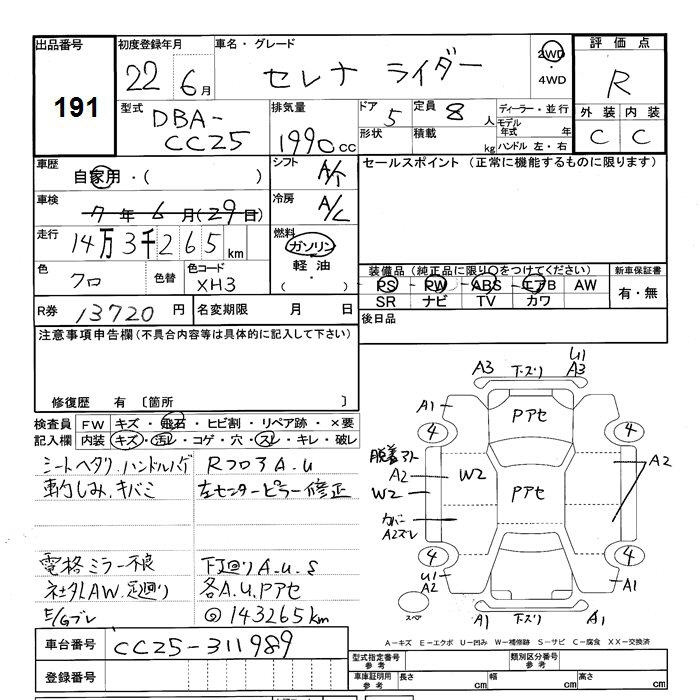 出品番号
191
初度登録年月
22 6月
車名・グレード
セレナ ライダー
2WD
・
4WD
評価点
R
外装 内装
C C
型式
DBA-
CC25
排気量
1990cc
ドア
5
形状
定員 8 人
積載 kg
ディーラー・並行
モデル
年式 年
ハンドル 左・右
車歴
自家用・( )
シフト
A/T
車検
7年6月(29日)
冷房
A/C
走行
14万3千265km
燃料
ガソリン
・
軽油
・
( )
色
クロ
色替
色コード
XH3
R券 13720円
名変期限 月 日
セールスポイント (正常に機能するものに限ります)
装備品 (純正品に限り○をつけてください)
PS PW ABS エアB AW
SR ナビ TV カワ
新車保証書
有・無
後日品
注意事項申告欄(不具合内容等は具体的に記入して下さい)
修復歴 有 〔箇所 〕
検査員
記入欄
FW キズ・飛石・ヒビ割・リペア跡・×要
内装 キズ・汚レ・コゲ・穴・スレ・キレ・破レ
シートヘタリ ハンドルハゲ
Rフロア A.U
車内しみ.キバミ
左センターピラー修正
電格ミラー不良
下廻り A.U.S
社外AW.足廻り
各A.U.Pアセ
E/Gブレ
◎143265km
車台番号 CC25-311989
登録番号
A3 下ズリ U1
A3
A1
Pアセ
4 4
脱着アト
A2
W2
W2
Pアセ
A2
カバー
A2ズレ
4 4
U1
A2
A1
スペア
A1 下ズリ A1
A-キズ E-エクボ U-凹み W-補修跡 S-サビ C-腐食 XX-交換済
型式指定番号
参考
類別区分番号
参考
車庫証明用
参考
長さ cm
幅 cm
高さ cm